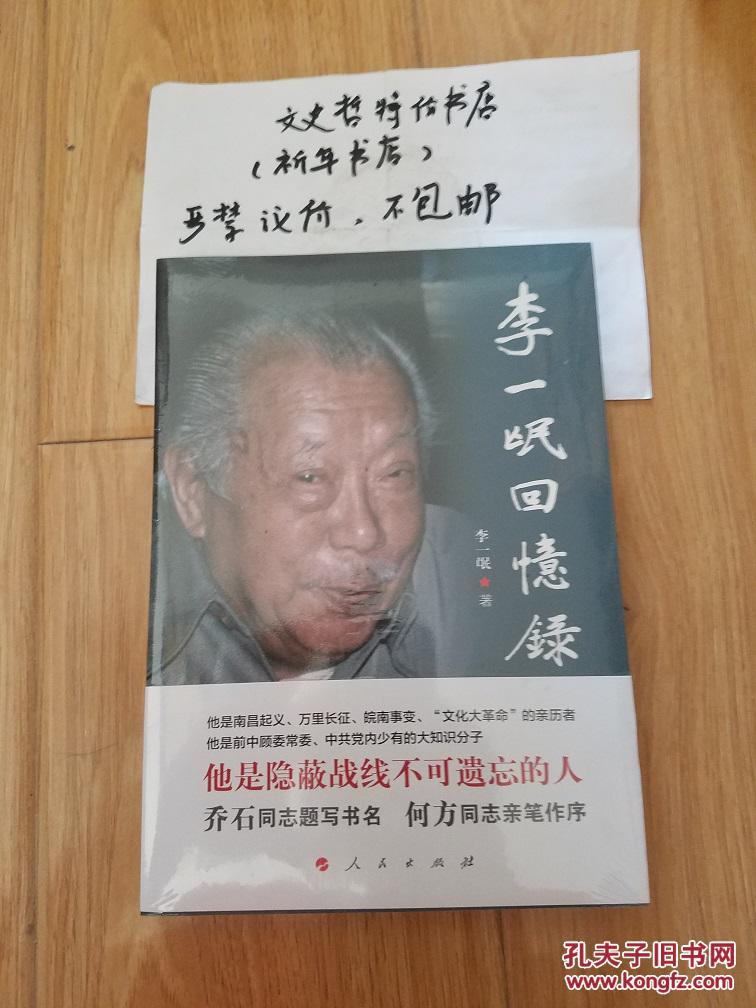 文史哲特价书店
（祈年书店）
严禁议价，不包邮
李一氓回憶録
李一氓★著
他是南昌起义、万里长征、皖南事变、“文化大革命”的亲历者
他是前中顾委常委、中共党内少有的大知识分子
他是隐蔽战线不可遗忘的人
乔石同志题写书名 何方同志亲笔作序
人民出版社
孔夫子旧书网
www.kongfz.com